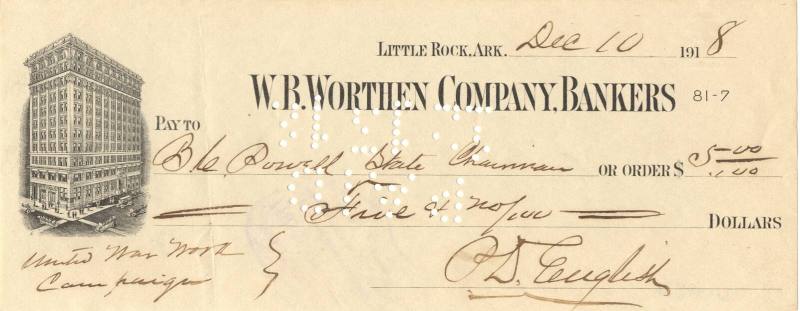 LITTLE ROCK, ARK. Dec 10 1918
W.B. WORTHEN COMPANY, BANKERS 81-7
PAY TO
B.C. Powell State Chairman OR ORDER $ 5.00/.100
Five & no/100 DOLLARS
United War Work
Campaign
P.D. English